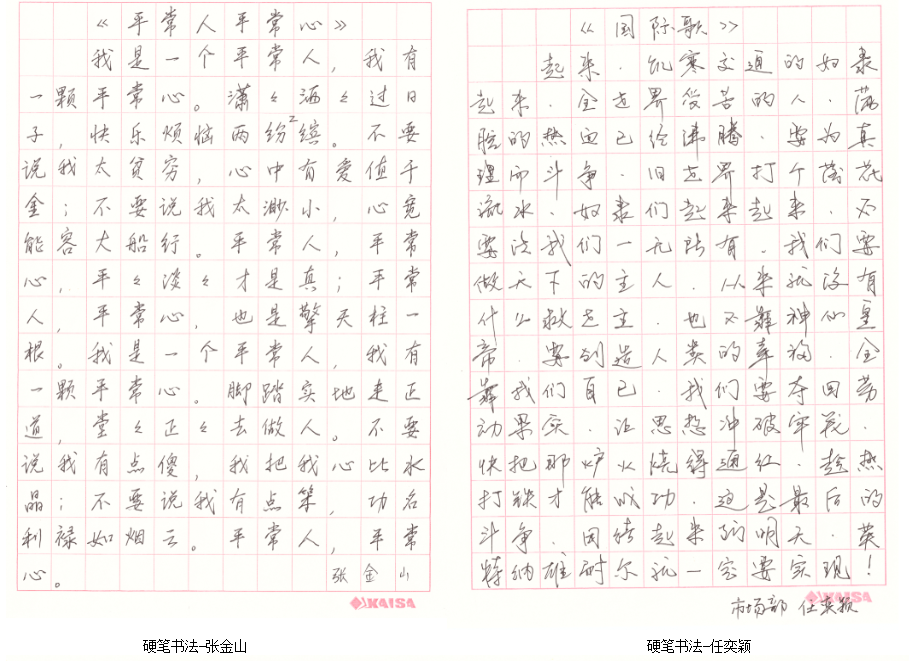 《平常人平常心》
我是一个平常人，我有
一颗平常心。潇々洒々过日
子，快乐烦恼两纷2缤。不要
说我太贫穷，心中有爱值千
金；不要说我太渺小，心宽
能容大船行。平常人，平常
心，平々淡々才是真；平常
人，平常心，也是擎天柱一
根。我是一个平常人，我有
一颗平常心。脚踏实地走正
道，堂々正々去做人。不要
说我有点傻，我把我心比水
晶；不要说我有点笨，功名
利禄如烟云。平常人，平常
心。
张金山
KAISA
硬笔书法-张金山
《国际歌》
起来．饥寒交迫的奴隶
起来．全世界受苦的人．满
腔的热血已经沸腾．要为真
理而斗争．旧世界打个落花
流水．奴隶们起来起来．不
要说我们一无所有．我们要
做天下的主人．从来就没有
什么救世主．也不靠神仙皇
帝．要创造人类的幸福．全
靠我们自己．我们要夺回劳
动果实．让思想冲破牢笼．
快把那炉火烧得通红．趁热
打铁才能成功．这是最后的
斗争．团结起来到明天．英
特纳雄耐尔就一定要实现！
KAISA
市场部 任奕颖
硬笔书法-任奕颖